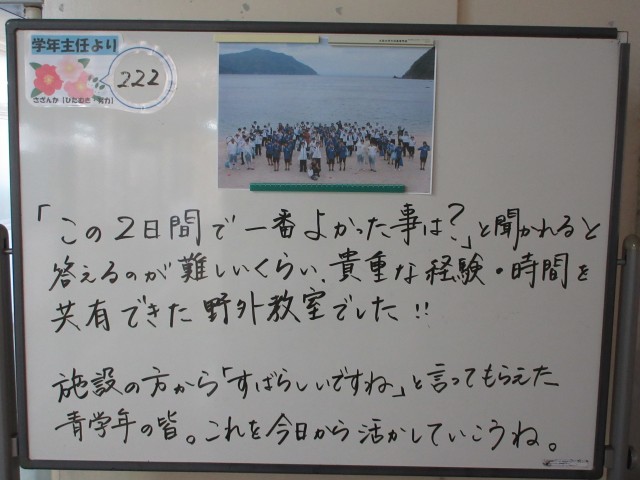 学年主任より
222
さざんか「ひたむき
「この2日間で一番よかった事は?」と聞かれると
答えるのが難しいくらい、貴重な経験・時間を
共有できた野外教室でした!!
施設の方から「すばらしいですね」と言ってもらえた
青学年の皆。これを今日から活かしていこうね。